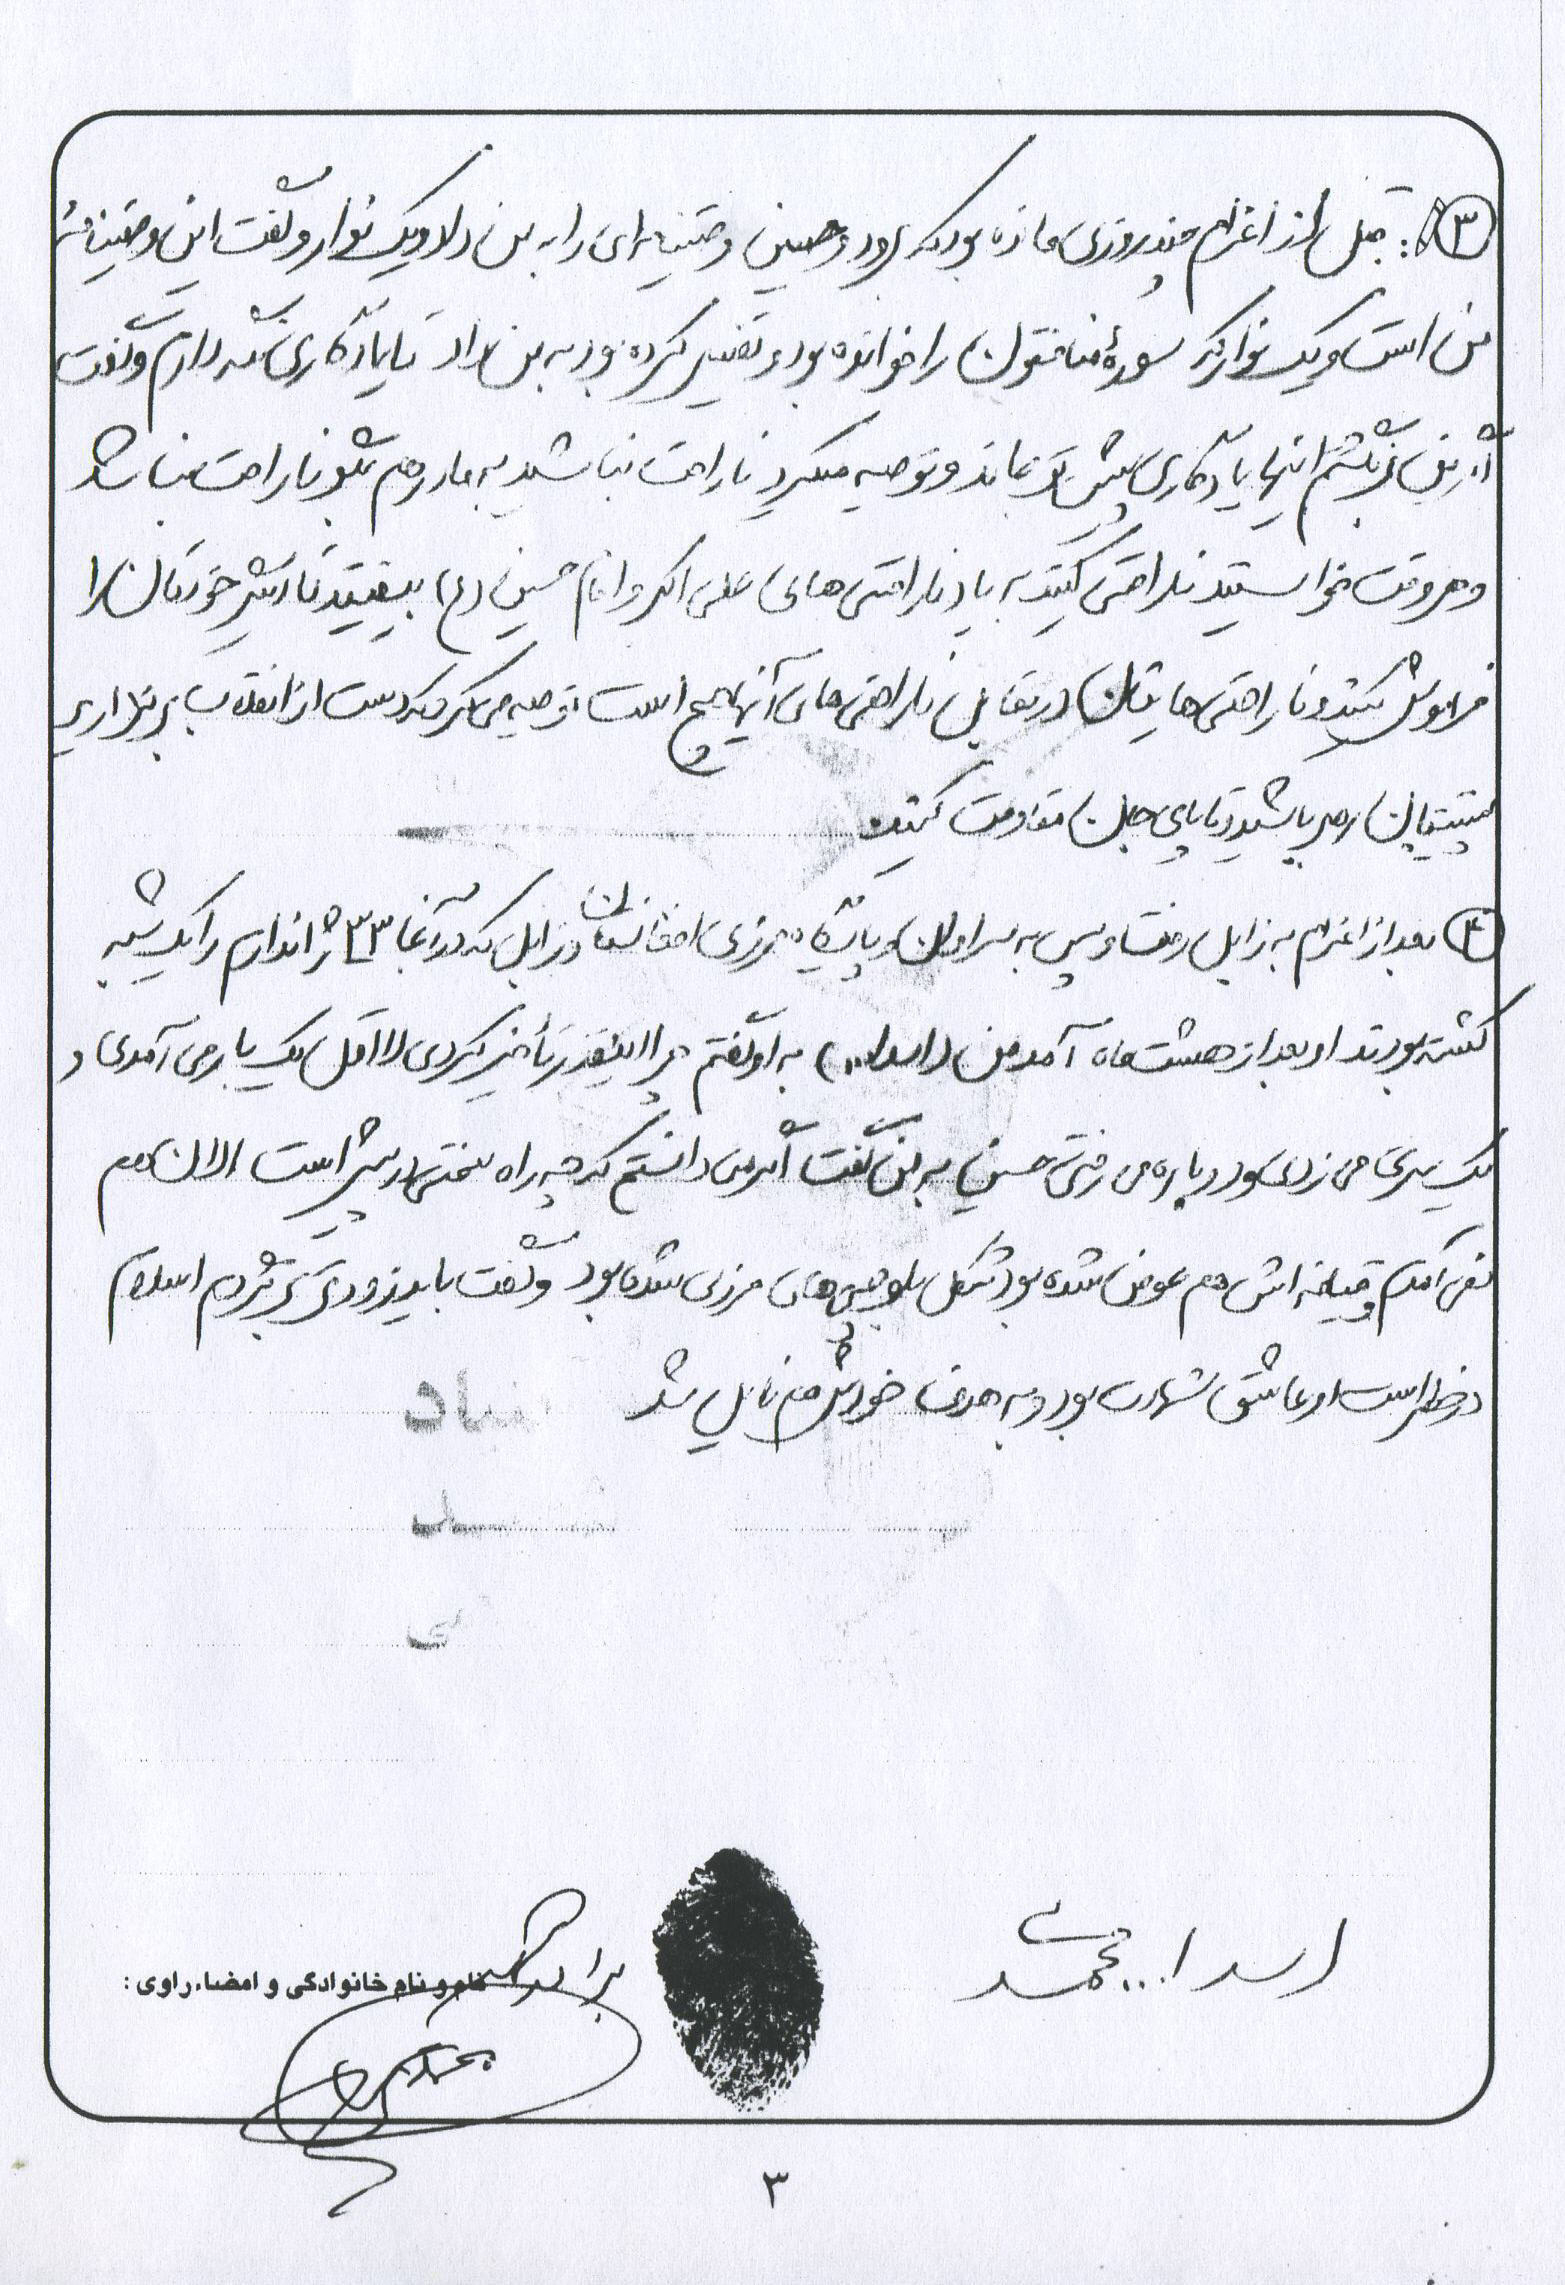 ۳: قبل از اعزام چند روزی مانده بود که برود حسین وصیتنامه‌ای را به من داد و یک نوار و گفت این وصیتنامه
من است و یک نوار که سورهٔ منافقون را خوانده بود و تفسیر کرده بود به من داد تا یادگاری نگه دارم و گفت
اگر من برنگشتم اینها یادگاری پیش تو بماند و توصیه میکرد ناراحت نباشید به مادر هم بگو ناراحت نباشد
و هر وقت خواستید ناراحتی کنید به یاد ناراحتی های علی اکبر و امام حسین (ع) بیفتید تا دیگر خودتان را
فراموش کنید و ناراحتی هایتان در مقابل ناراحتی های آنها هیچ است و توصیه می کرد که دست از انقلاب بر ندارید
پشتیبان رهبر باشید و تا پای جان مقاومت کنید.
۴ بعد از اعزام به زابل رفت و پس به سراوان و پاسگاه مرزی افغانستان در زابل که در آنجا ۳۳ ژاندارم را یک شبه
کشته بودند او بعد از هشت ماه آمد من (اسدا...) به او گفتم چرا اینقدر تأخیر کردی لااقل یک بار می آمدی و
یک سری می زدی و دوباره می رفتی حسین به من گفت اگر می دانستم که چه راه سختی در پیش است الان هم
نمی آمدم و قیافه اش هم عوض شده بود شکل بلوچی های مرزی شده بود و گفت باید زودتر برگردم اسلام
در خطر است او عاشق شهادت بود و به هدف خودش هم نایل شد
اسدا... محمدی
برادر شهید
نام و نام خانوادگی و امضاء راوی :
۳